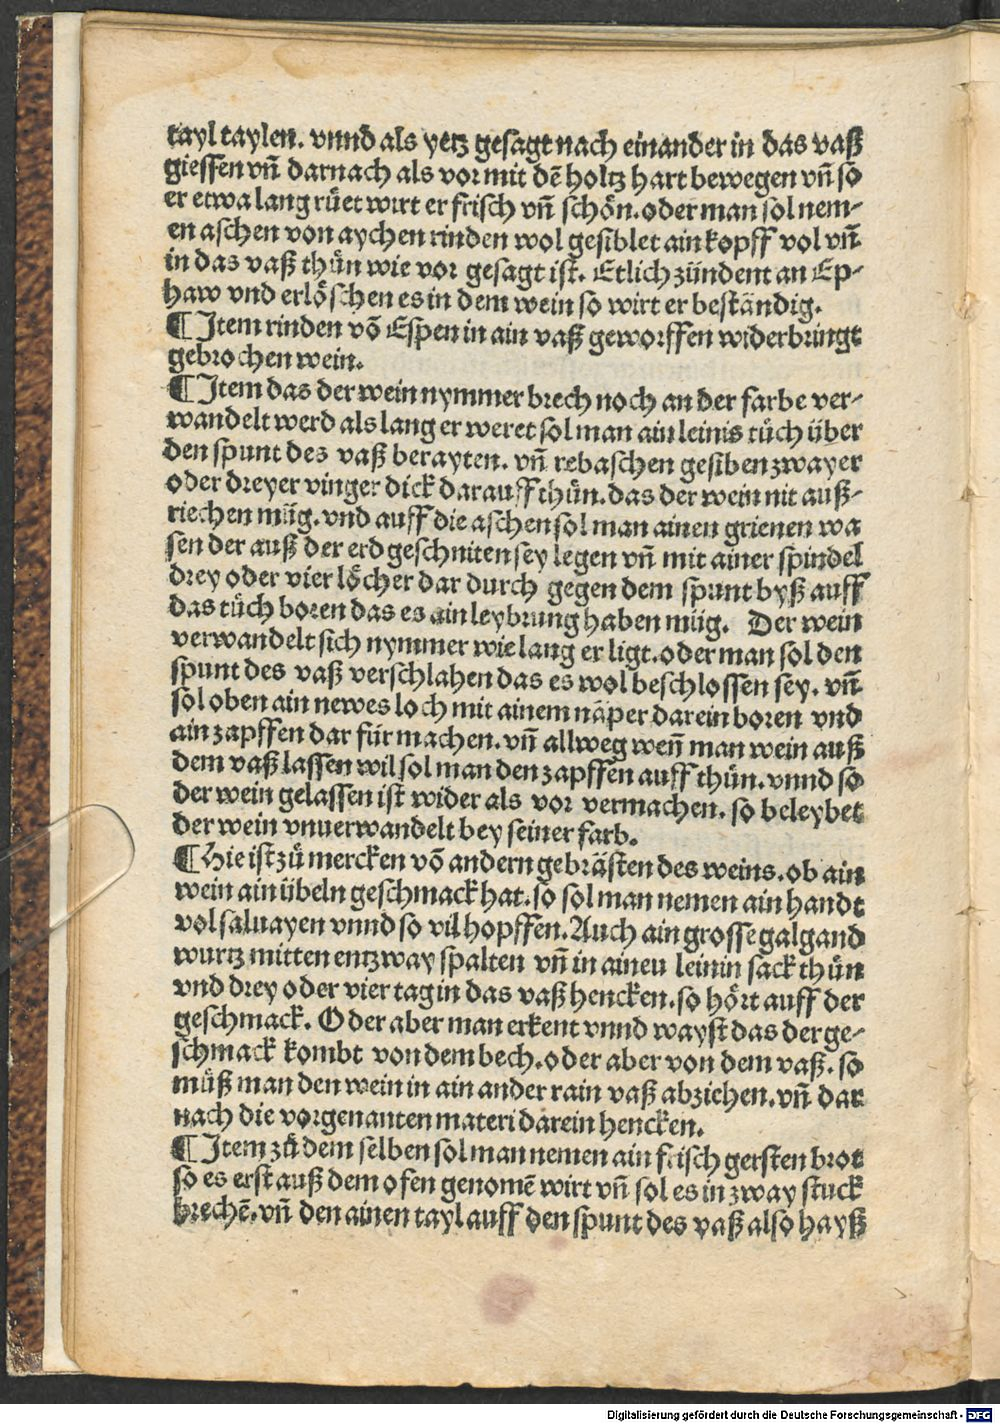 tayl taylen. vnnd als yetz gesagt nach einander in das vaß
giessen vñ darnach als vor mit dē holtz hart bewegen vñ so
er etwa lang rüet wirt er frisch vñ schön. oder man sol nem⸗
en aschen von aychen rinden wol gesiblet ain kopff vol vñ
in das vaß thůn wie vor gesagt ist. Etlich zündent an Ep⸗
haw vnd erlöschen es in dem wein so wirt er beständig.
¶ Item rinden vō Espen in ain vaß geworffen widerbringt
gebrochen wein.
¶ Item das der wein nymmer brech noch an der farbe ver⸗
wandelt werd als lang er weret sol man ain leinis tůch über
den spunt des vaß berayten. vñ rebaschen gesiben zwayer
oder dreyer vinger dick darauff thůn. das der wein nit auß⸗
riechen müg. vnd auff die aschen sol man ainen grienen wa
sen der auß der erd geschniten sey legen vñ mit ainer spindel
drey oder vier löcher dar durch gegen dem spunt byß auff
das tůch boren das es ain leybrung haben müg. Der wein
verwandelt sich nymmer wie lang er ligt. oder man sol den
spunt des vaß verschlahen das es wol beschlossen sey. vñ
sol oben ain newes loch mit ainem näper darein boren vnd
ain zapffen dar für machen. vñ allweg weñ man wein auß
dem vaß lassen wil sol man den zapffen auff thůn. vnnd so
der wein gelassen ist wider als vor vermachen. so beleybet
der wein vnuerwandelt bey seiner farb.
¶ Hie ist zů mercken vō andern gebrästen des weins. ob ain
wein ain übeln geschmack hat. so sol man nemen ain handt
vol saluayen vnnd so vil hopffen. Auch ain grosse galgand
wurtz mitten entzway spalten vñ in ainen leinin sack thůn
vnd drey oder vier tag in das vaß hencken. so hört auff der
geschmack. Oder aber man erkent vnnd wayst das der ge⸗
schmack kombt von dem bech. oder aber von dem vaß. so
můß man den wein in ain ander rain vaß abziehen. vñ dar
nach die vorgenanten materi darein hencken.
¶ Item zů dem selben sol man nemen ain frisch gersten brot
so es erst auß dem ofen genomē wirt vñ sol es in zway stuck
brechē. vñ den ainen tayl auff den spunt des vaß also hayß
Digitalisierung gefördert durch die Deutsche Forschungsgemeinschaft - DFG